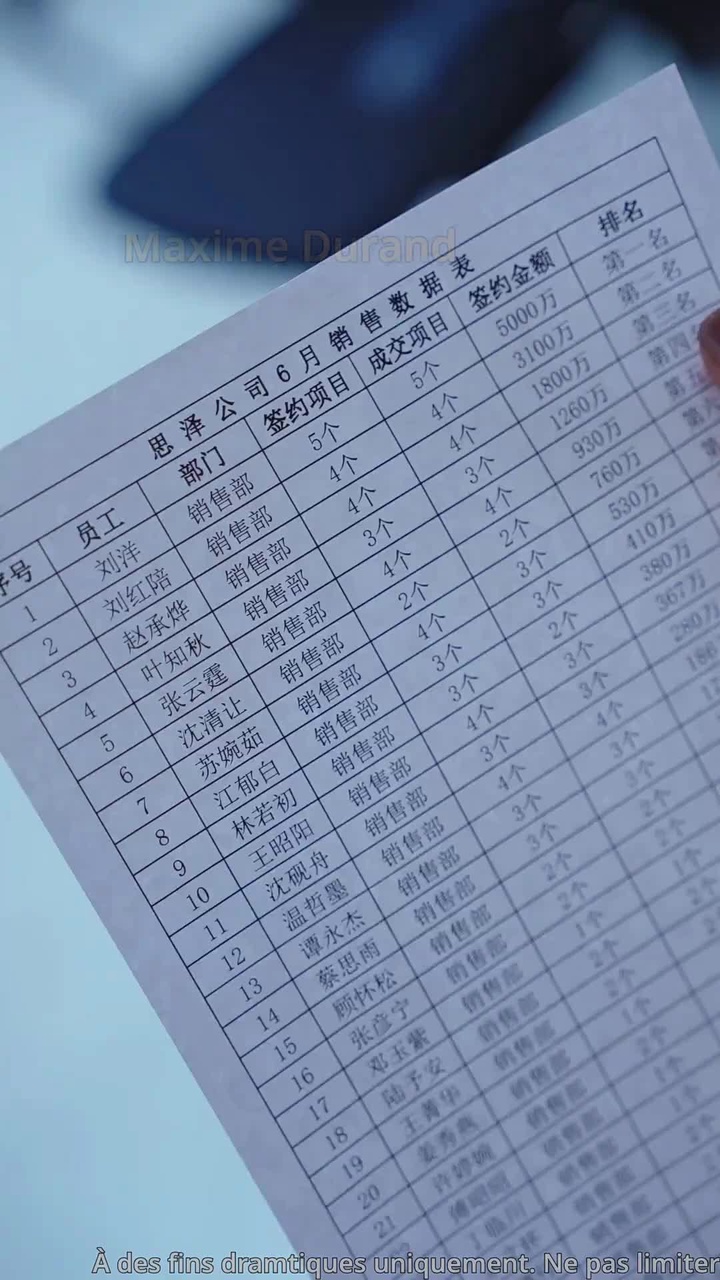 Maxime Durand
思泽公司6月销售数据表
序号 员工 部门 签约项目 成交项目 签约金额 排名
1 刘洋 销售部 5个 5个 5000万 第一名
2 刘红陪 销售部 4个 4个 3100万 第二名
3 赵承烨 销售部 4个 4个 1800万 第三名
4 叶知秋 销售部 3个 3个 1260万 第四
5 张云霆 销售部 4个 4个 930万 第五
6 沈清让 销售部 2个 2个 760万 第
7 苏婉茹 销售部 4个 3个 530万
8 江郁白 销售部 3个 3个 410万
9 林若初 销售部 3个 2个 380万
10 王昭阳 销售部 4个 3个 367万
11 沈砚舟 销售部 3个 3个 280万
12 温哲墨 销售部 4个 4个
13 谭永杰 销售部 3个 3个
14 蔡思雨 销售部 3个 3个
15 顾怀松 销售部 2个 2个
16 张彦宁 销售部 2个 2个
17 邓玉紫 销售部 1个 1个
18 陆予安 销售部 2个 2个
19 王菁华 销售部 2个
20 姜秀燕 销售部 1个
21 销售部 2个
销售部 1个
À des fins dramtiques uniquement. Ne pas limiter